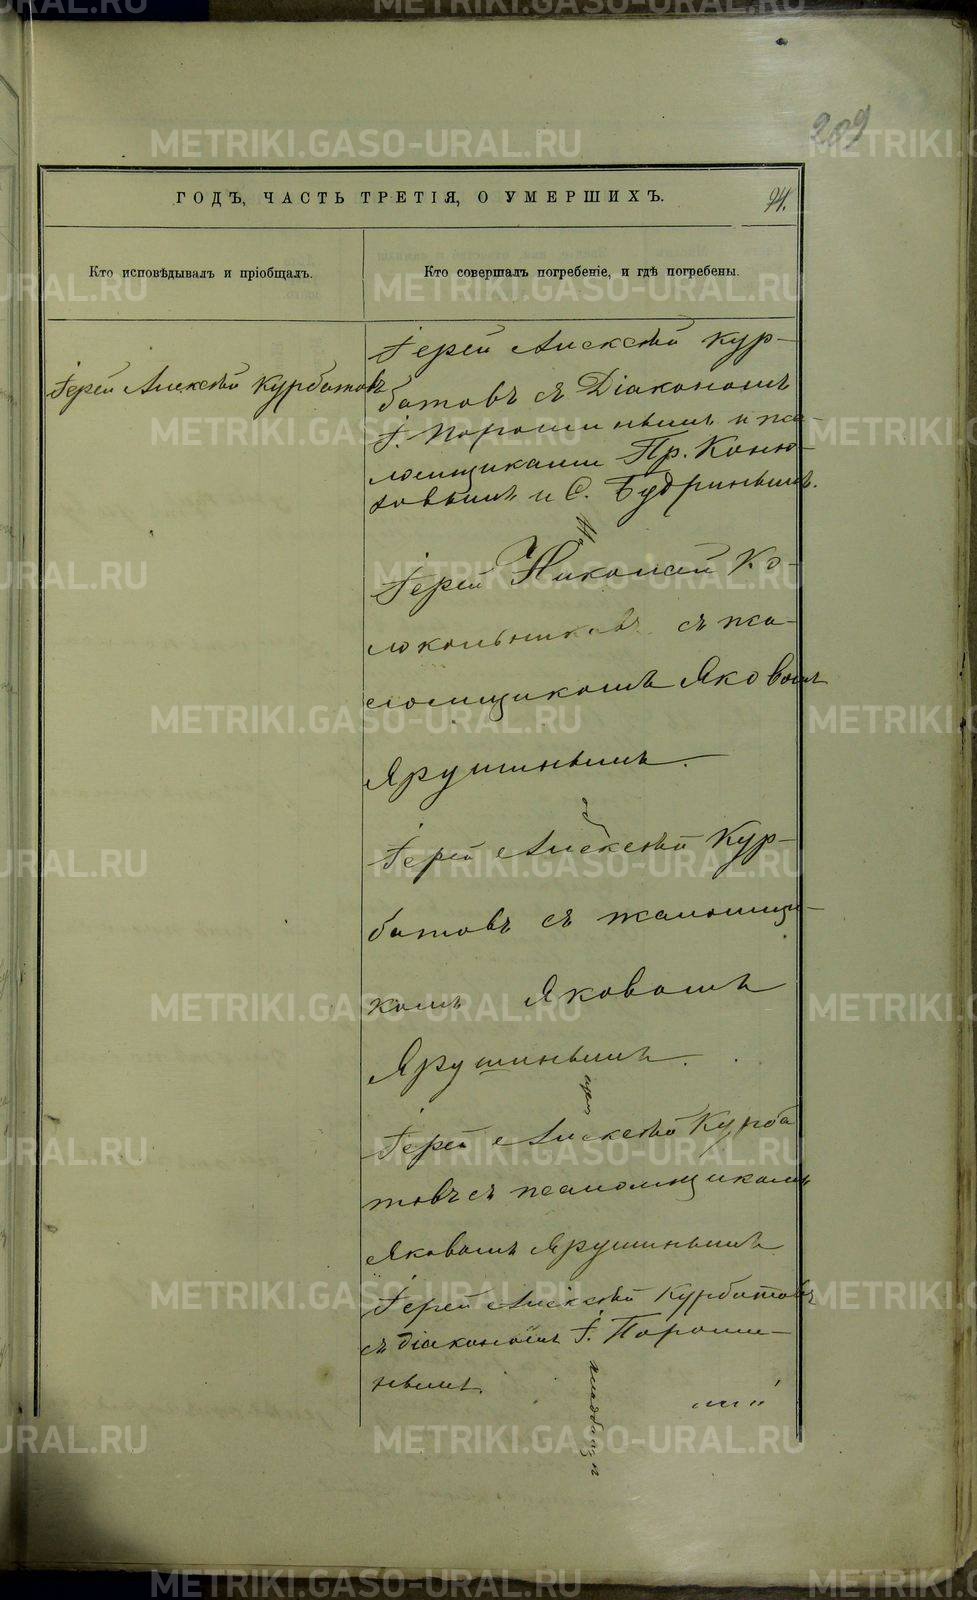 209
ГОДЪ, ЧАСТЬ ТРЕТІЯ, О УМЕРШИХЪ.
94.
Кто исповѣдывалъ и пріобщалъ.
Кто совершалъ погребеніе, и гдѣ погребены.
Іерей Алексѣй Курбатовъ
Іерей Алексѣй Кур-
батовъ съ Діакономъ
І. Порошинымъ и пса-
ломщиками Пр. Коню-
ховымъ и С. Будринымъ.
На
Іерей Николай Ко-
локольниковъ съ пса-
ломщикомъ Яковомъ
Ярушинымъ.
об
Іерей Алексѣй Кур-
батовъ съ псаломщи-
комъ Яковомъ
Ярушинымъ.
Іерей Алексѣй Курба
товъ съ псаломщикомъ
Яковомъ Ярушинымъ
Іерей Алексѣй Курбатовъ
съ діакономъ І. Пороши-
нымъ.
кладбищѣ
METRIKI.GASO-URAL.RU